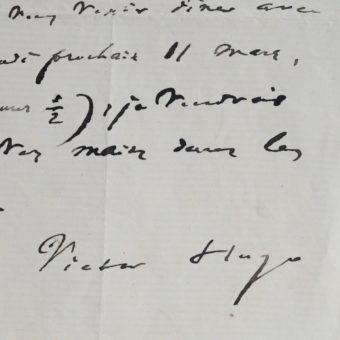 venir dîner avec
prochain 11 mars,
1/2), je voudrais
mains dans les
Victor Hugo